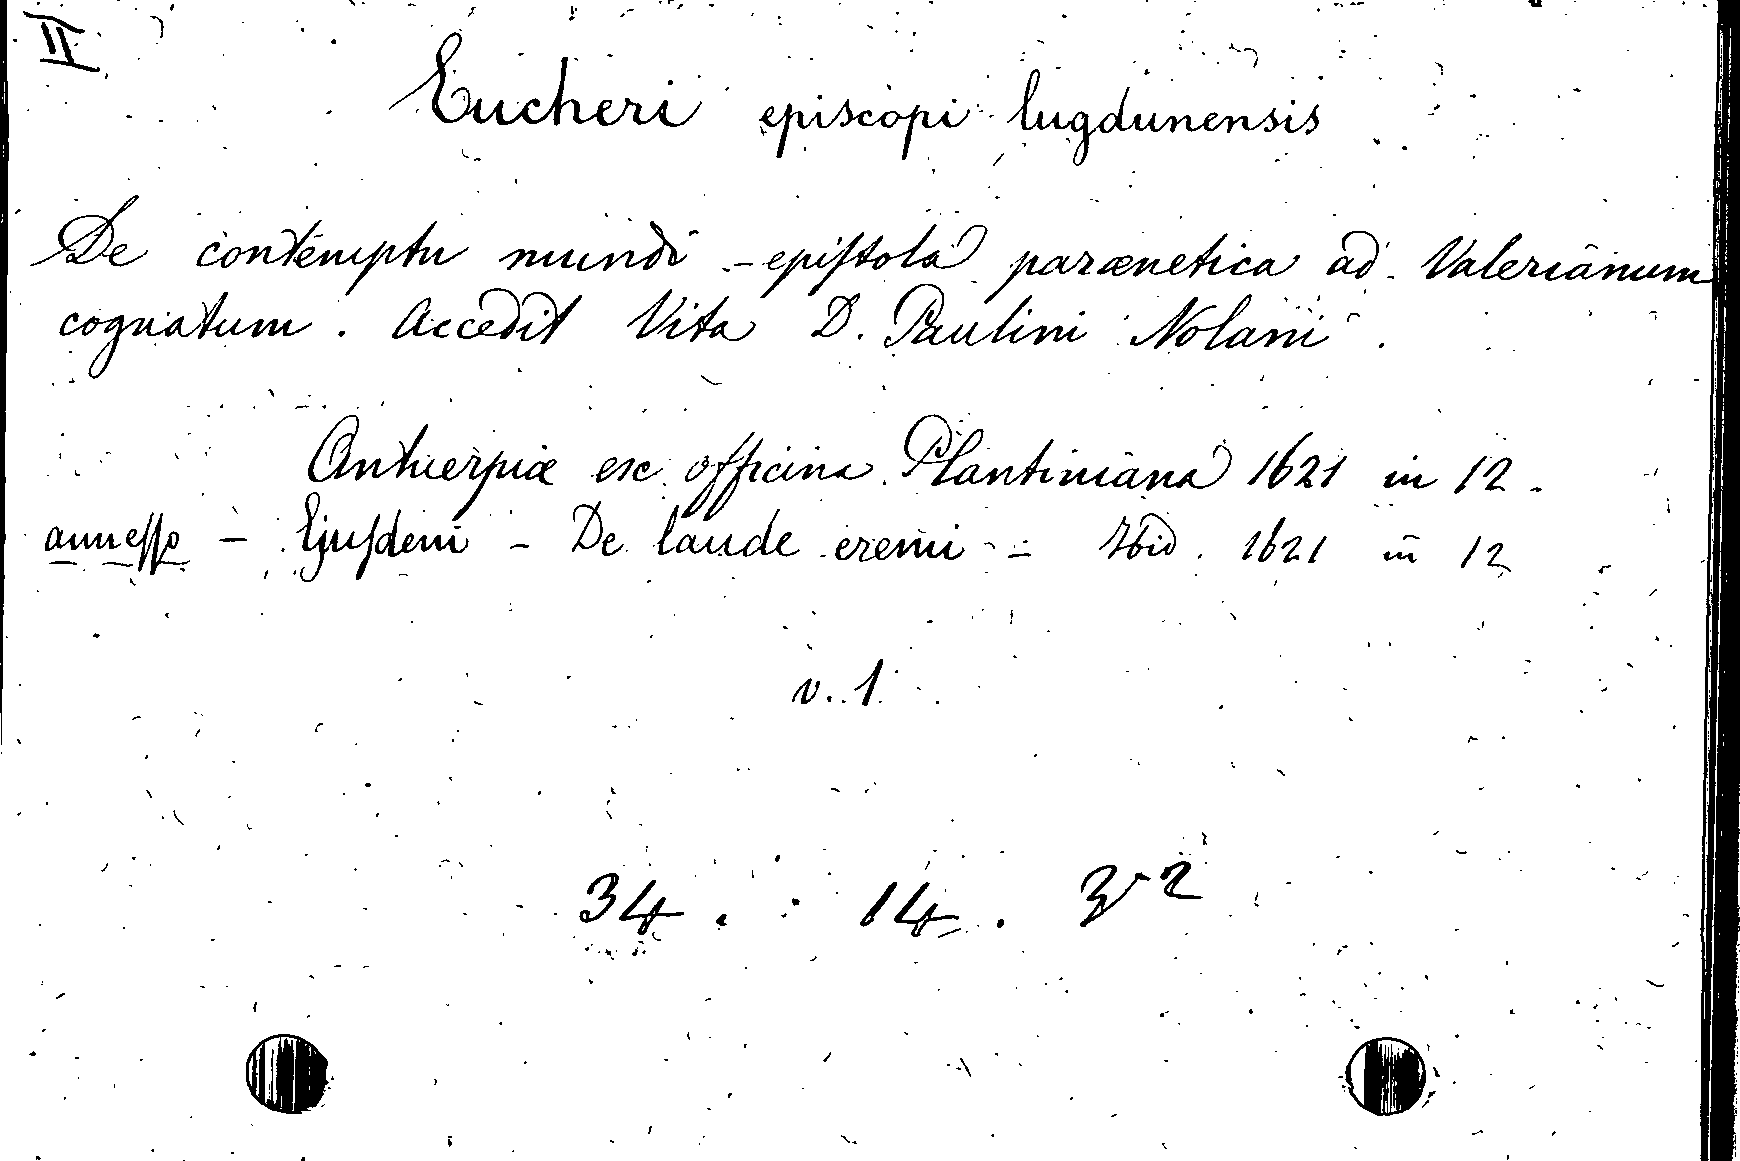 II
Eucheri episcopi lugdunensis
De contemptu mundi - epistola parænetica ad Valerianum
cognatum. Accedit Vita D. Paulini Nolani.
Antuerpiæ ex officina Plantiniana 1621 in 12.
annesso - Ejusdem - De laude eremi - Ibid. 1621 in 12
v. 1
34. 14. 3